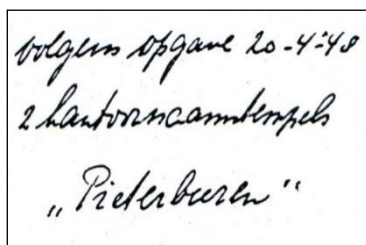 volgens opgave 20-4-'48
2 kantoornaamstempels
„Pieterburen“